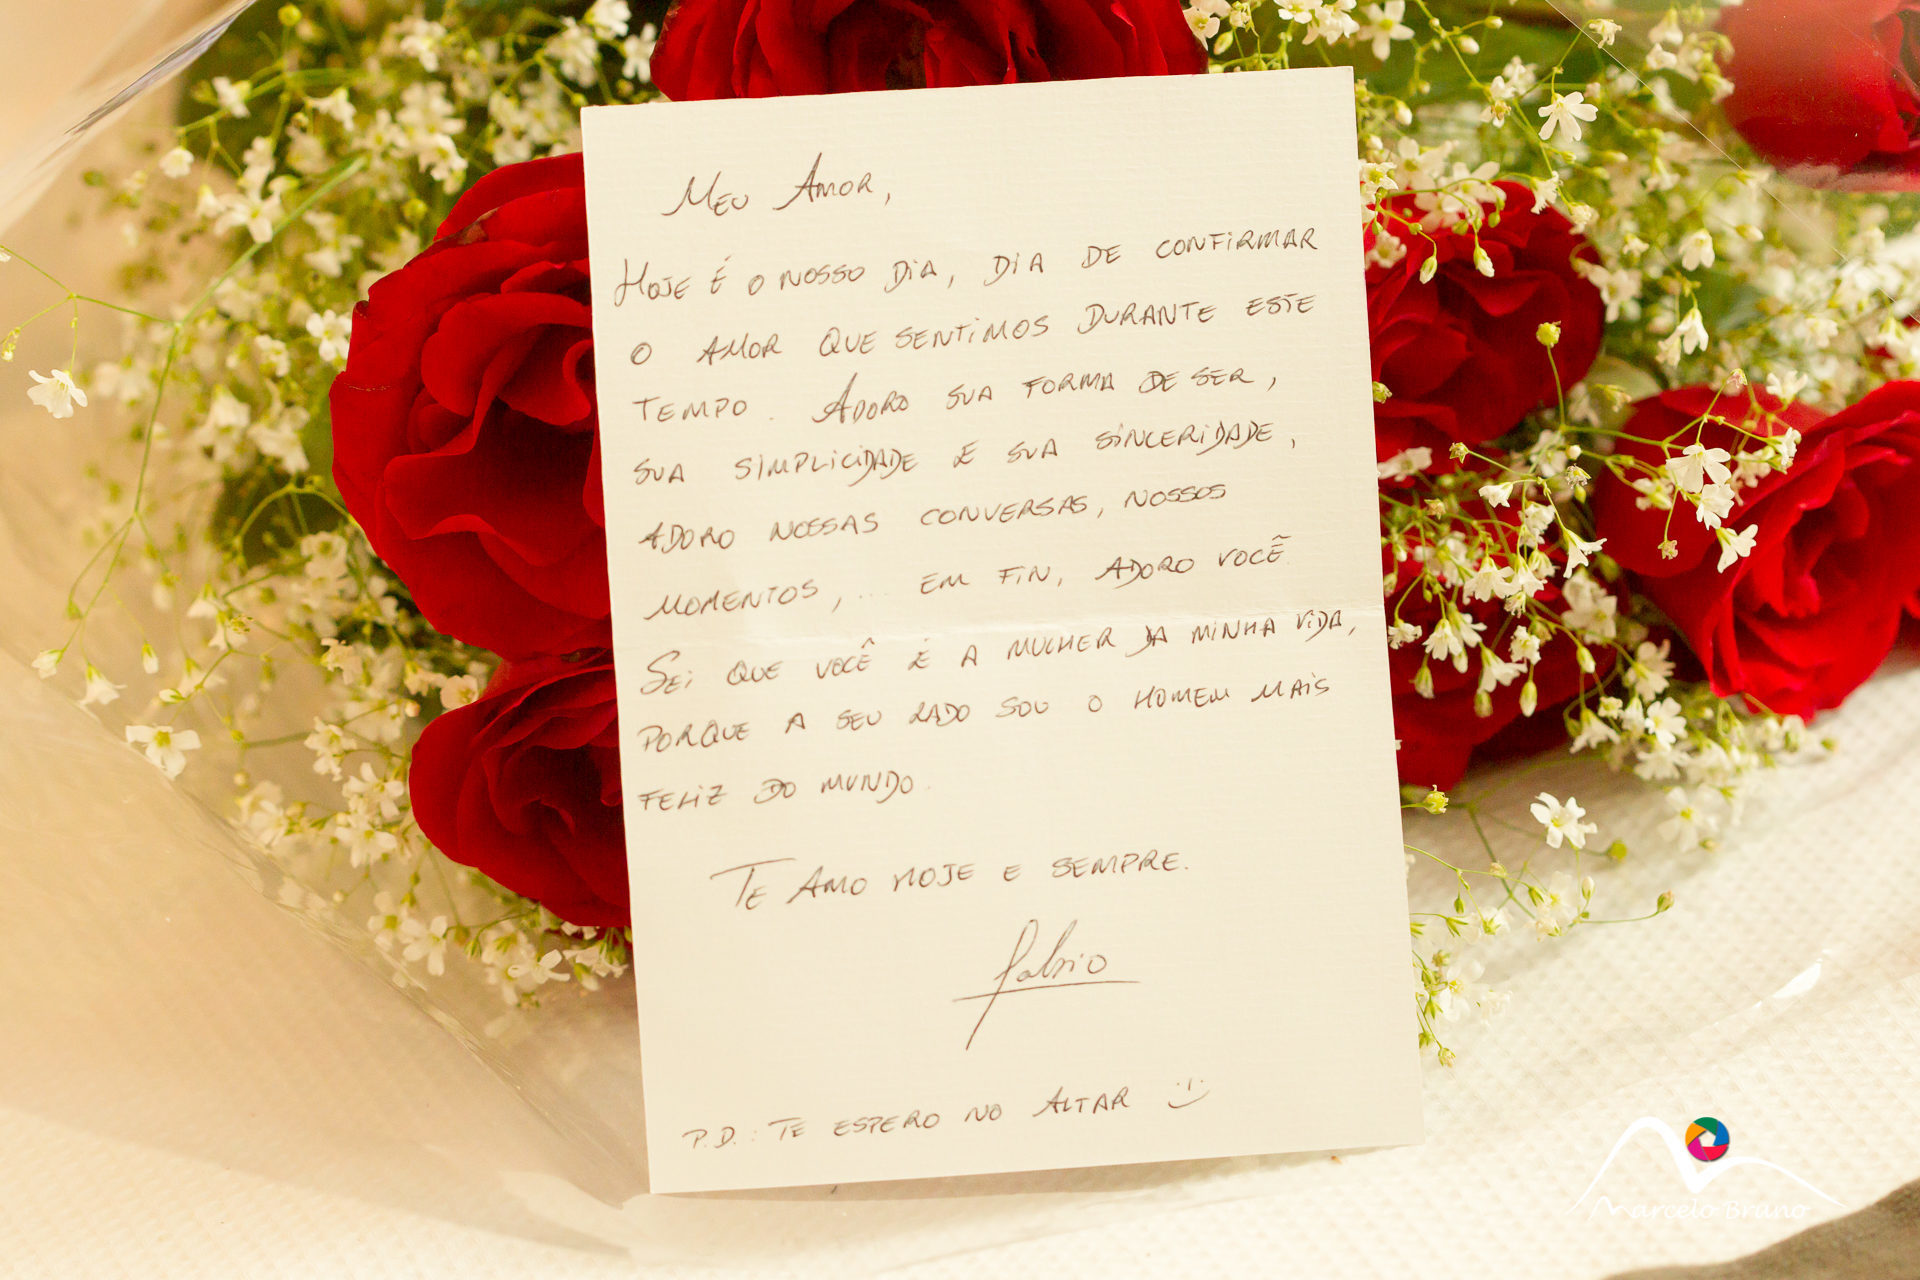 MEU AMOR,
HOJE É O NOSSO DIA, DIA DE CONFIRMAR
O AMOR QUE SENTIMOS DURANTE ESTE
TEMPO. ADORO SUA FORMA DE SER,
SUA SIMPLICIDADE E SUA SINCERIDADE,
ADORO NOSSAS CONVERSAS, NOSSOS
MOMENTOS, ... EM FIN, ADORO VOCÊ.
SEI QUE VOCÊ É A MULHER DA MINHA VIDA,
PORQUE A SEU LADO SOU O HOMEM MAIS
FELIZ DO MUNDO.
TE AMO HOJE E SEMPRE.
Fabio
P.D.: TE ESPERO NO ALTAR :)
Marcelo Bruno